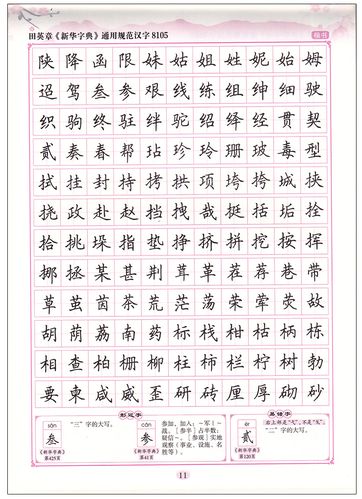 田英章《新华字典》通用规范汉字8105 楷书
陕降函限妹姑姐姓妮始姆
迢驾叁参艰线练组绅细驶
织驹终驻绊驼绍绎经贯契
贰奏春帮玷珍玲珊玻毒型
拭挂封持拷拱项垮挎城挟
挠政赴赵挡拽哉挺括垢拴
拾挑垛指垫挣挤拼挖按挥
挪拯某甚荆茸革茬荐巷带
草茧茵茶荒茫荡荣荤荧故
胡荫荔南药标栈柑枯柄栋
相查柏栅柳柱柿栏柠树勃
要柬咸威歪研砖厘厚砌砂
形近字
sān
叁
《新华字典》
第425页
“三”字的大写。
cān
参
《新华字典》
第41页
参加，加入：～军｜～
战。[参半]占半数：
疑信～。[参观]实地
观察（事业、设施、名
胜等）。
易错字
èr
贰
《新华字典》
第120页
右上部是“弋”，不是“戈”。
“二”字的大写。
11